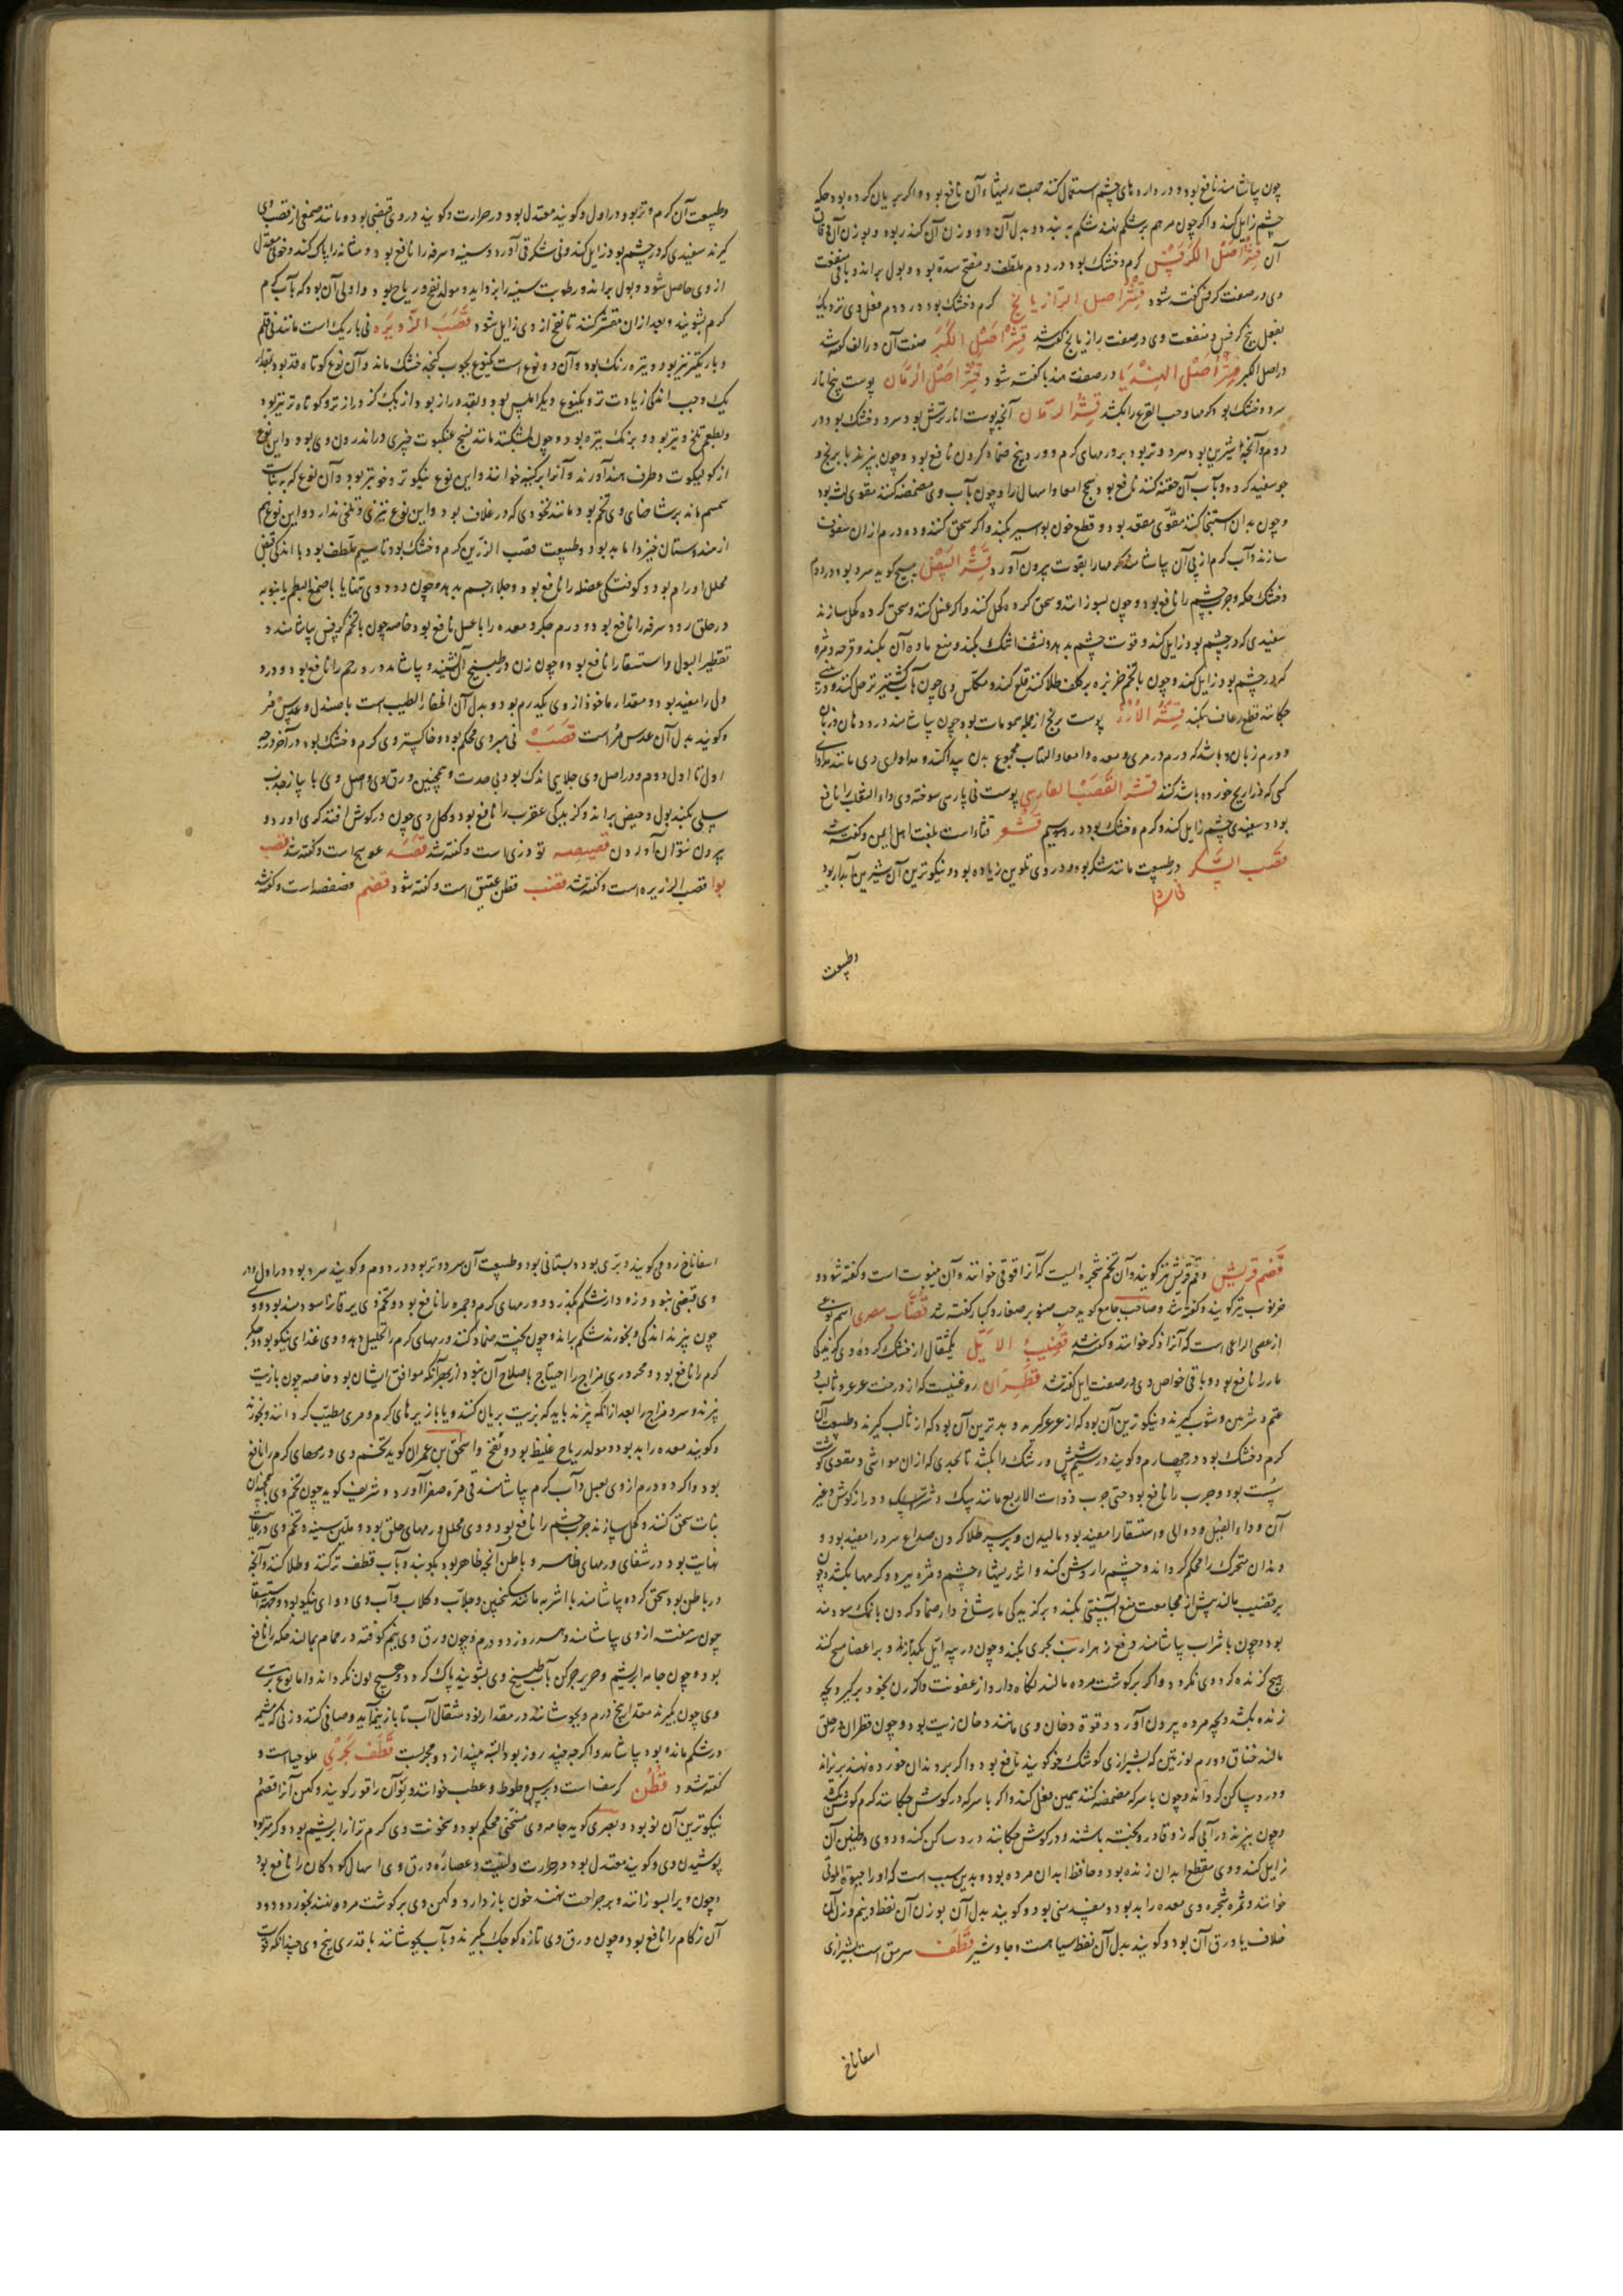 چون بیاشامند نافع بود و در داروهای چشم استعمال کنند جهت ریشهاء آن نافع بود و اگر بریان کرده بود حکه
چشم زایل کند و اگر چون مرهم بر شکم نهند شکم به بندد و بدل آن دو وزن آن کندر بود و بوزن آن
آن قشر اصل الکرفس گرم و خشک بود در دوم ملطف و مفتح سده بود و بول براند و باقی منفعت
وی در صفت کرفس گفته شود قشر اصل الرازیانج گرم و خشک بود در دوم فعل وی نزدیک
بفعل بیخ کرفس و منفعت وی در صفت رازیانج گفته شد قشر اصل الکبر صفت آن در الف گفته شد
در اصل الکبر قشر اصل الهندبا در صفت هندبا گفته شود قشر اصل الرمان پوست بیخ انار
سرد و خشک بود کرمها و حب القرع را بکشد قشر الرمان آنچه پوست انار ترش بود سرد و خشک بود در
دوم و آنچه شیرین بود سرد و تر بود بر ورمهای گرم و در پنج ضماد کردن نافع بود و چون بپزند با برنج و
جو سفید کرده و بآب آن حقنه کنند نافع بود سحج امعا و اسهال را و چون بآب وی مضمضه کنند مقوی لثه بود
و چون بدان استنجا کنند مقوی مقعد بود و قطع خون بواسیر بکند و اگر سحق کنند و ده درم از آن سفوف
سازند و آب گرم از پی آن بیاشامند کرمها را بقوت بیرون آورد قشر البیض مسیح گوید سرد بود در دوم
و خشک حکه و جرب چشم را نافع بود و چون بسوزانند و سحق کرده کحل کنند و اگر غسل کنند و سحق کرده کحل سازند
سفیدی که در چشم بود زایل کند و قوت چشم بدهد و نشف اشک بکند و منع ماده آن بکند و قرحه و بثره
که در چشم بود زایل کند و چون با تخم خربزه بر کلف طلا کنند قلع کند و مکلس وی چون بآب گشنیز تر حل کنند و در بینی
چکانند قطع رعاف بکند قشر الارز پوست برنج از جمله سمومات بود چون بیاشامند درد دهان و زبان
و ورم زبان و باشد که ورم در مری و معده و امعا و التهاب مجموع بدن پیدا کند و مداوای وی مانند مداوای
کسی که ذراریح خورده باشد کنند قشر القصب الفارسی پوست نی پارسی سوخته وی داء الثعلب را نافع
بود و سفیدی چشم زایل کند و گرم و خشک بود در سیم قشعر قثاء است بلغت اهل یمن و گفته شد
قصب السکر در طبیعت مانند شکر بود و در وی تلیین زیاده بود و نیکوترین آن شیرین آبدار بود
وطبیعت
وطبیعت آن گرم و تر بود در اول و گویند معتدل بود در حرارت و گویند در وی قبضی بود و مانند صمغی از قصب وی
گیرند سفیدی که در چشم بود زایل کند و نی شکر قی آورد و سینه و سرفه را نافع بود و مثانه را پاک کند و خونی معتدل
از وی حاصل شود و بول براند و رطوبت سینه را بزداید و مولد نفخ و ریاح بود و اولی آن بود که بآب گرم
گرم بشویند و بعد از آن مقشر کنند تا نفخ از وی زایل شود قصب الذریره نی باریک است مانند نی قلم
و باریکتر نیز بود و تیره رنگ بود و آن دو نوع است یکنوع بچوب کنجد خشک ماند و آن نوع کوتاه قد بود بمقدار
یک وجب اندکی زیادت تر و یکنوع دیگر املس بود و بقد دراز بود از یک گز درازتر و کوتاه تر نیز بود
و بطعم تلخ و تیز بود و برنگ تیره بود و چون بشکنند مانند نسج عنکبوت چیزی در اندرون وی بود و این نوع
از کولیکوت و طرف هند آورند و آنرا برکنیه خوانند و این نوع نیکوتر و خوبتر بود و آن نوع که به نبات
سمسم ماند بر شاخهای وی تخم بود مانند نخودی که در غلاف بود و این نوع تیزی و تلخی ندارد و این نوع هم
از هندوستان خیزد اما بد بود و طبیعت قصب الذریره گرم و خشک بود تا سیم ملطف بود با اندکی قبض
محلل اورام بود و کوفتگی عضله را نافع بود و جلا در جسم بدهد و چون دود وی تنها یا با صمغ البطم بانبوبه
در حلق رود سرفه را نافع بود و ورم جگر و معده را با عسل نافع بود خاصه چون با تخم کرفس بیاشامند و
تقطیر البول و استسقا را نافع بود و چون زن در طبیخ آن نشیند و بیاشامد درد رحم را نافع بود و درد
دل را مفید بود و مقدار ماخوذ از وی یکدرم بود و بدل آن اظفار الطیب است با صندل و عدس مر
و گویند بدل آن عدس مر است قصب نی میروی محکم بود و خاکستر وی گرم و خشک بود در آخر درجه
اول تا اول دوم و در اصل وی جلایی اندک بود بی حدت و همچنین ورق وی و اصل وی با پیاز جذب
سلی بکند بول و حیض براند و گزیدگی عقرب را نافع بود و گل وی چون در گوش افتد کری آورد و
بیرون نتوان آوردن قصیصه تودری است و گفته شد قصد عوسج است و گفته شد قصب
بوا قصب الذریره است و گفته شد قضب قطن عتیق است و گفته شود قضم فصفصه است و گفته شد
قضم قریش وقم قریش نیز گویند و آن تخم شجره ایست که آنرا قوقی خوانند و آن ینبوت است و گفته شود و
خرنوب نیز گویند و گفته شد و صاحب جامع گوید حب صنوبر صغار و کبار گفته شد قضاب مصری اسم نوعی
از عصی الراعی است که آنرا ذکر خوانند و گفته شد قضیب الایل یکمثقال از خشک کرده وی گزیدگی
مار را نافع بود و باقی خواص وی در صفت ایل گفته شد قطران روغنیست که از درخت عرعر و تالب و
عتم و شربین و شوب گیرند و نیکوترین آن بود که از عرعر گیرند و بدترین آن بود که از تالب گیرند و طبیعت آن
گرم و خشک بود در چهارم و گویند در سیم شپش و رشک را بکشد تا بحدی که از آن مواشی و مقوی گوشت
سست بود و جرب را نافع بود حتی جرب ذوات الاربع مانند سگ و شتر و دراز گوش و غیر
آن و داء الفیل و دوالی و استسقا را مفید بود مالیدن و بر سر طلا کردن صداع سرد را مفید بود و
دندان متحرک را محکم گرداند و چشم را روشن کند و اثر ریشهاء چشم و مژه ببرد و کرمها بکشد و چون
بر قضیب مالند پیش از مجامعت منع آبستنی بکند و بر گزیدگی مار شاخ دار ضماد کردن با نمک سودمند
بود و چون با شراب بیاشامند دفع زهر ارنب بحری بکند و چون در پیه ایل بگدازند و بر اعضا مسح کنند
هیچ گزنده گرد وی نگردد و اگر بر گوشت مرده مالند نگاه دارد از عفونت و اگر زن بخود برگیرد بچه
زنده بکشد و بچه مرده بیرون آورد و قوة دخان وی مانند دخان زیت بود و چون قطران در حلق
مالند خناق و ورم لوزتین که بشیرازی گوشک خو گویند نافع بود و اگر بر دندان خورده نهند بریزاند
و درد ساکن گرداند و چون با سرکه مضمضه کنند همین فعل کند و اگر با سرکه در گوش چکانند کرم گوش بکشد
و چون بپزند در آبی که زوفا در وی پخته باشند و در گوش چکانند درد ساکن کند و دوی و طنین آن
زایل کند و وی مقطع ابدان زنده بود و حافظ ابدان مرده بود و بدین سبب است که او را حیوة الموتی
خوانند و ثمره شجره وی معده را بد بود و مفسد منی بود و گویند بدل آن بوزن آن نفط و نیم وزن آن
خلاف یا ورق آن بود و گویند بدل آن نفط سیاهست و جاوشیر قطف سرمق است بشیرازی
اسفاناخ
اسفاناخ رومی گویند و بری بود و بستانی بود و طبیعت آن سرد و تر بود در دوم و گویند سرد بود در اول و در
وی قبضی نبود و زود از شکم بگذرد و ورمهای گرم و جمره را نافع بود و تخم وی یرقان را سودمند بود و وی
چون بپزند اندکی و بخورند شکم براند و چون پخته ضماد کنند ورمهای گرم را تحلیل دهد و وی غذای نیکو بود و جگر
گرم را نافع بود و محروری مزاج را احتیاج باصلاح آن نبود از بهر آنکه موافق ایشان بود خاصه چون بازیت
بپزند و سرد مزاج را بعد از آنکه بپزند باید که بزیت بریان کنند و یا با ابزیرهای گرم و مری مطیب گردانند و بخورند
و گویند معده را بد بود و مولد ریاح غلیظ بود و نفخ و اسحق بن عمران گوید تخم وی ورمهای گرم را نافع
بود و اگر دو درم از وی بعسل و آب گرم بیاشامند قی مره صفرا آورد و شریف گوید چون تخم وی
نبات سحق کنند و کحل سازند جرب چشم را نافع بود و وی محلل ورمهای حلق بود و ملین سینه و تخم وی در غایت
نهایت بود در شفای ورمهای ظاهر و باطن آنچه ظاهر بود بکوبند و بآب قطف تر کنند و طلا کنند و آنچه
در باطن بود سحق کرده بیاشامند با اشربه مانند سکنجبین و جلاب و گلاب و آب وی دوای نیکو بود استسقا
چون سه هفته از وی بیاشامند هر روز دو درم و چون ورق وی نیم کوفته در حمام بمالند حکه را نافع
بود و چون جامه ابریشم و حریر چرکن بآب طبیخ وی بشویند پاک گردد و هیچ لون نگرداند و اما نوع بری
وی چون بگیرند مقدار پنج درم و بجوشانند در مقدار نود مثقال آب تا بازنیمه آید و صافی کنند و زنی که مشیمه
در شکم مانده بود بیاشامد و اگر چه چند روز بود البته بیندازد و مجربست قطف بحری ملوخیاست و
گفته شود قطن کرسف است و برس و طوط و عطب خوانند و نو آن را قور گویند و کهن آنرا قضم
نیکوترین آن نو بود و بصری گوید جامه وی سخنی محکم بود و سخونت وی گرم تر از ابریشم بود و گرمتر بود
پوشیدن وی و گویند معتدل بود در حرارت و لینت و عصاره ورق وی اسهال کودکان را نافع بود
و چون ویرا بسوزانند و بر جراحت نهند خون باز دارد و کهن وی بر گوشت مرده نهند بخورد و دود
آن زکام را نافع بود و چون ورق وی تازه کوچک بگیرند و بآب بجوشانند با قدری بیخ وی چندانکه قوت